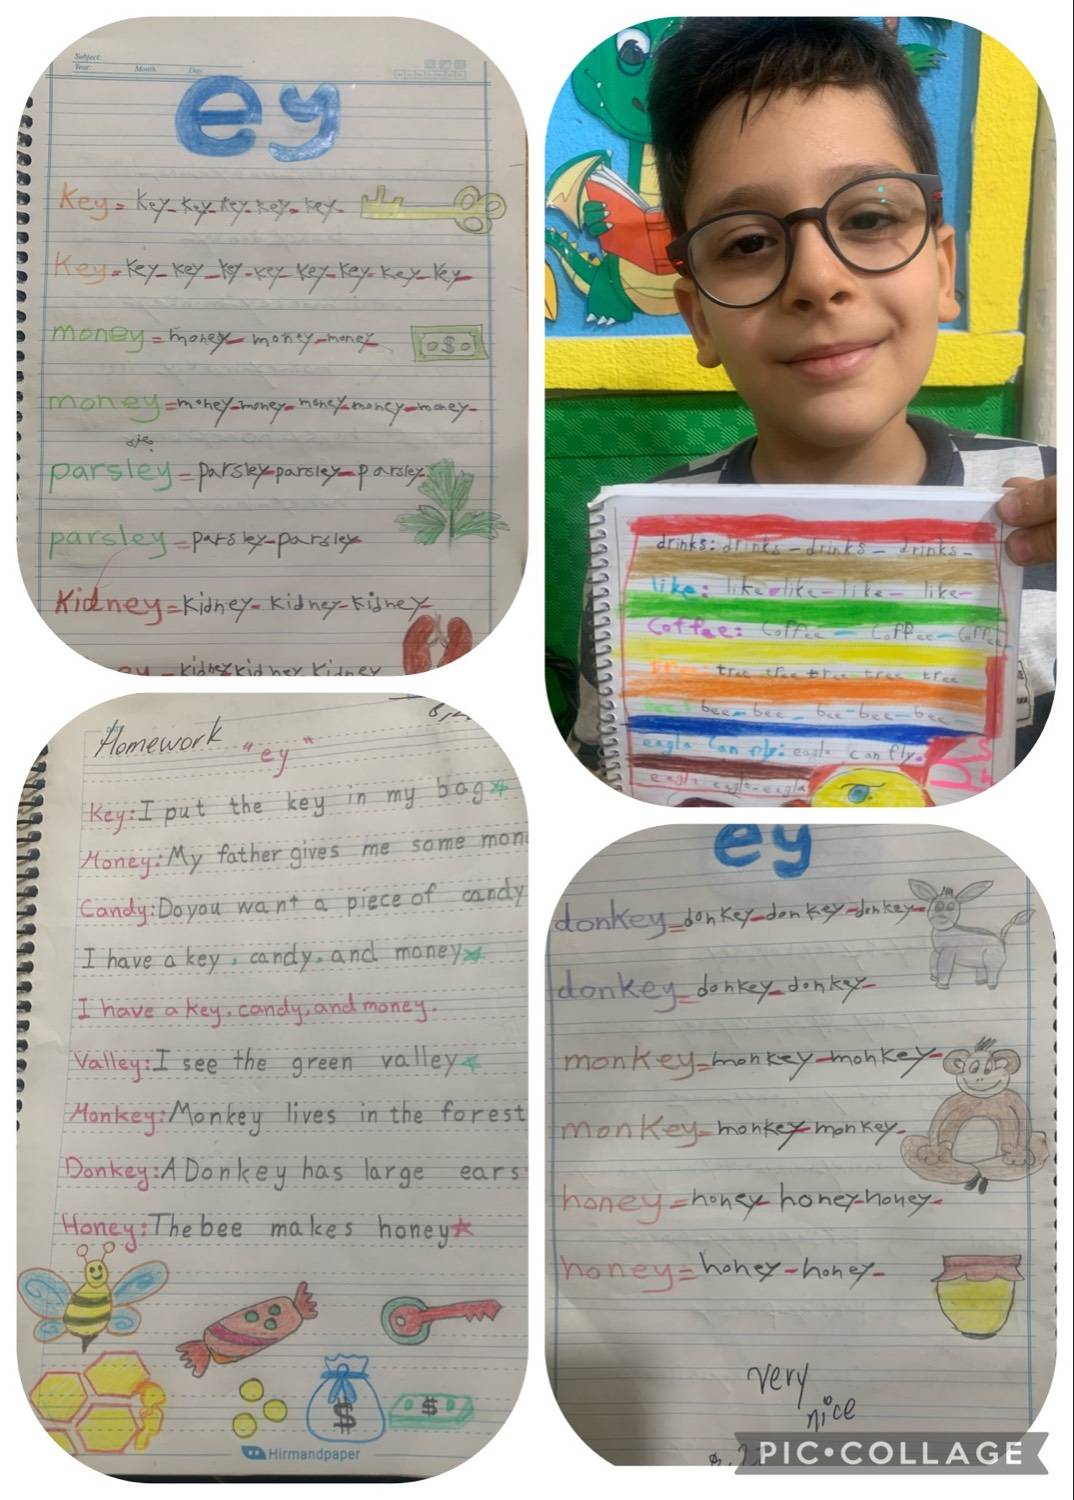 Subject:
Year: Month: Day:
ey
Key = key - key - key - key - key -
Key = key - key - key - key - key - key - key - key
money = money - money - money
money = money - money - money - money - money -
parsley = parsley - parsley - parsley
parsley = parsley - parsley
Kidney = Kidney - Kidney - Kidney
kidney kidney Kidney
drinks: drinks - drinks - drinks -
like: like - like - like - like -
Coffee: Coffee - Coffee - Coffee
tree: tree tree tree tree tree
bee: bee - bee - bee - bee - bee -
eagle can fly: eagle can fly.
eagle: eagle - eagle
Homework "ey"
Key: I put the key in my bag
Money: My father gives me some mon
Candy: Do you want a piece of candy
I have a key, candy, and money
I have a key, candy, and money.
Valley: I see the green valley
Monkey: Monkey lives in the forest
Donkey: A Donkey has large ears
Honey: The bee makes honey
$
$
Hirmandpaper
ey
donkey = donkey - donkey - donkey -
donkey - donkey - donkey -
monkey = monkey - monkey -
monkey - monkey - monkey -
honey = honey - honey - honey -
honey = honey - honey -
very
nice
PIC•COLLAGE